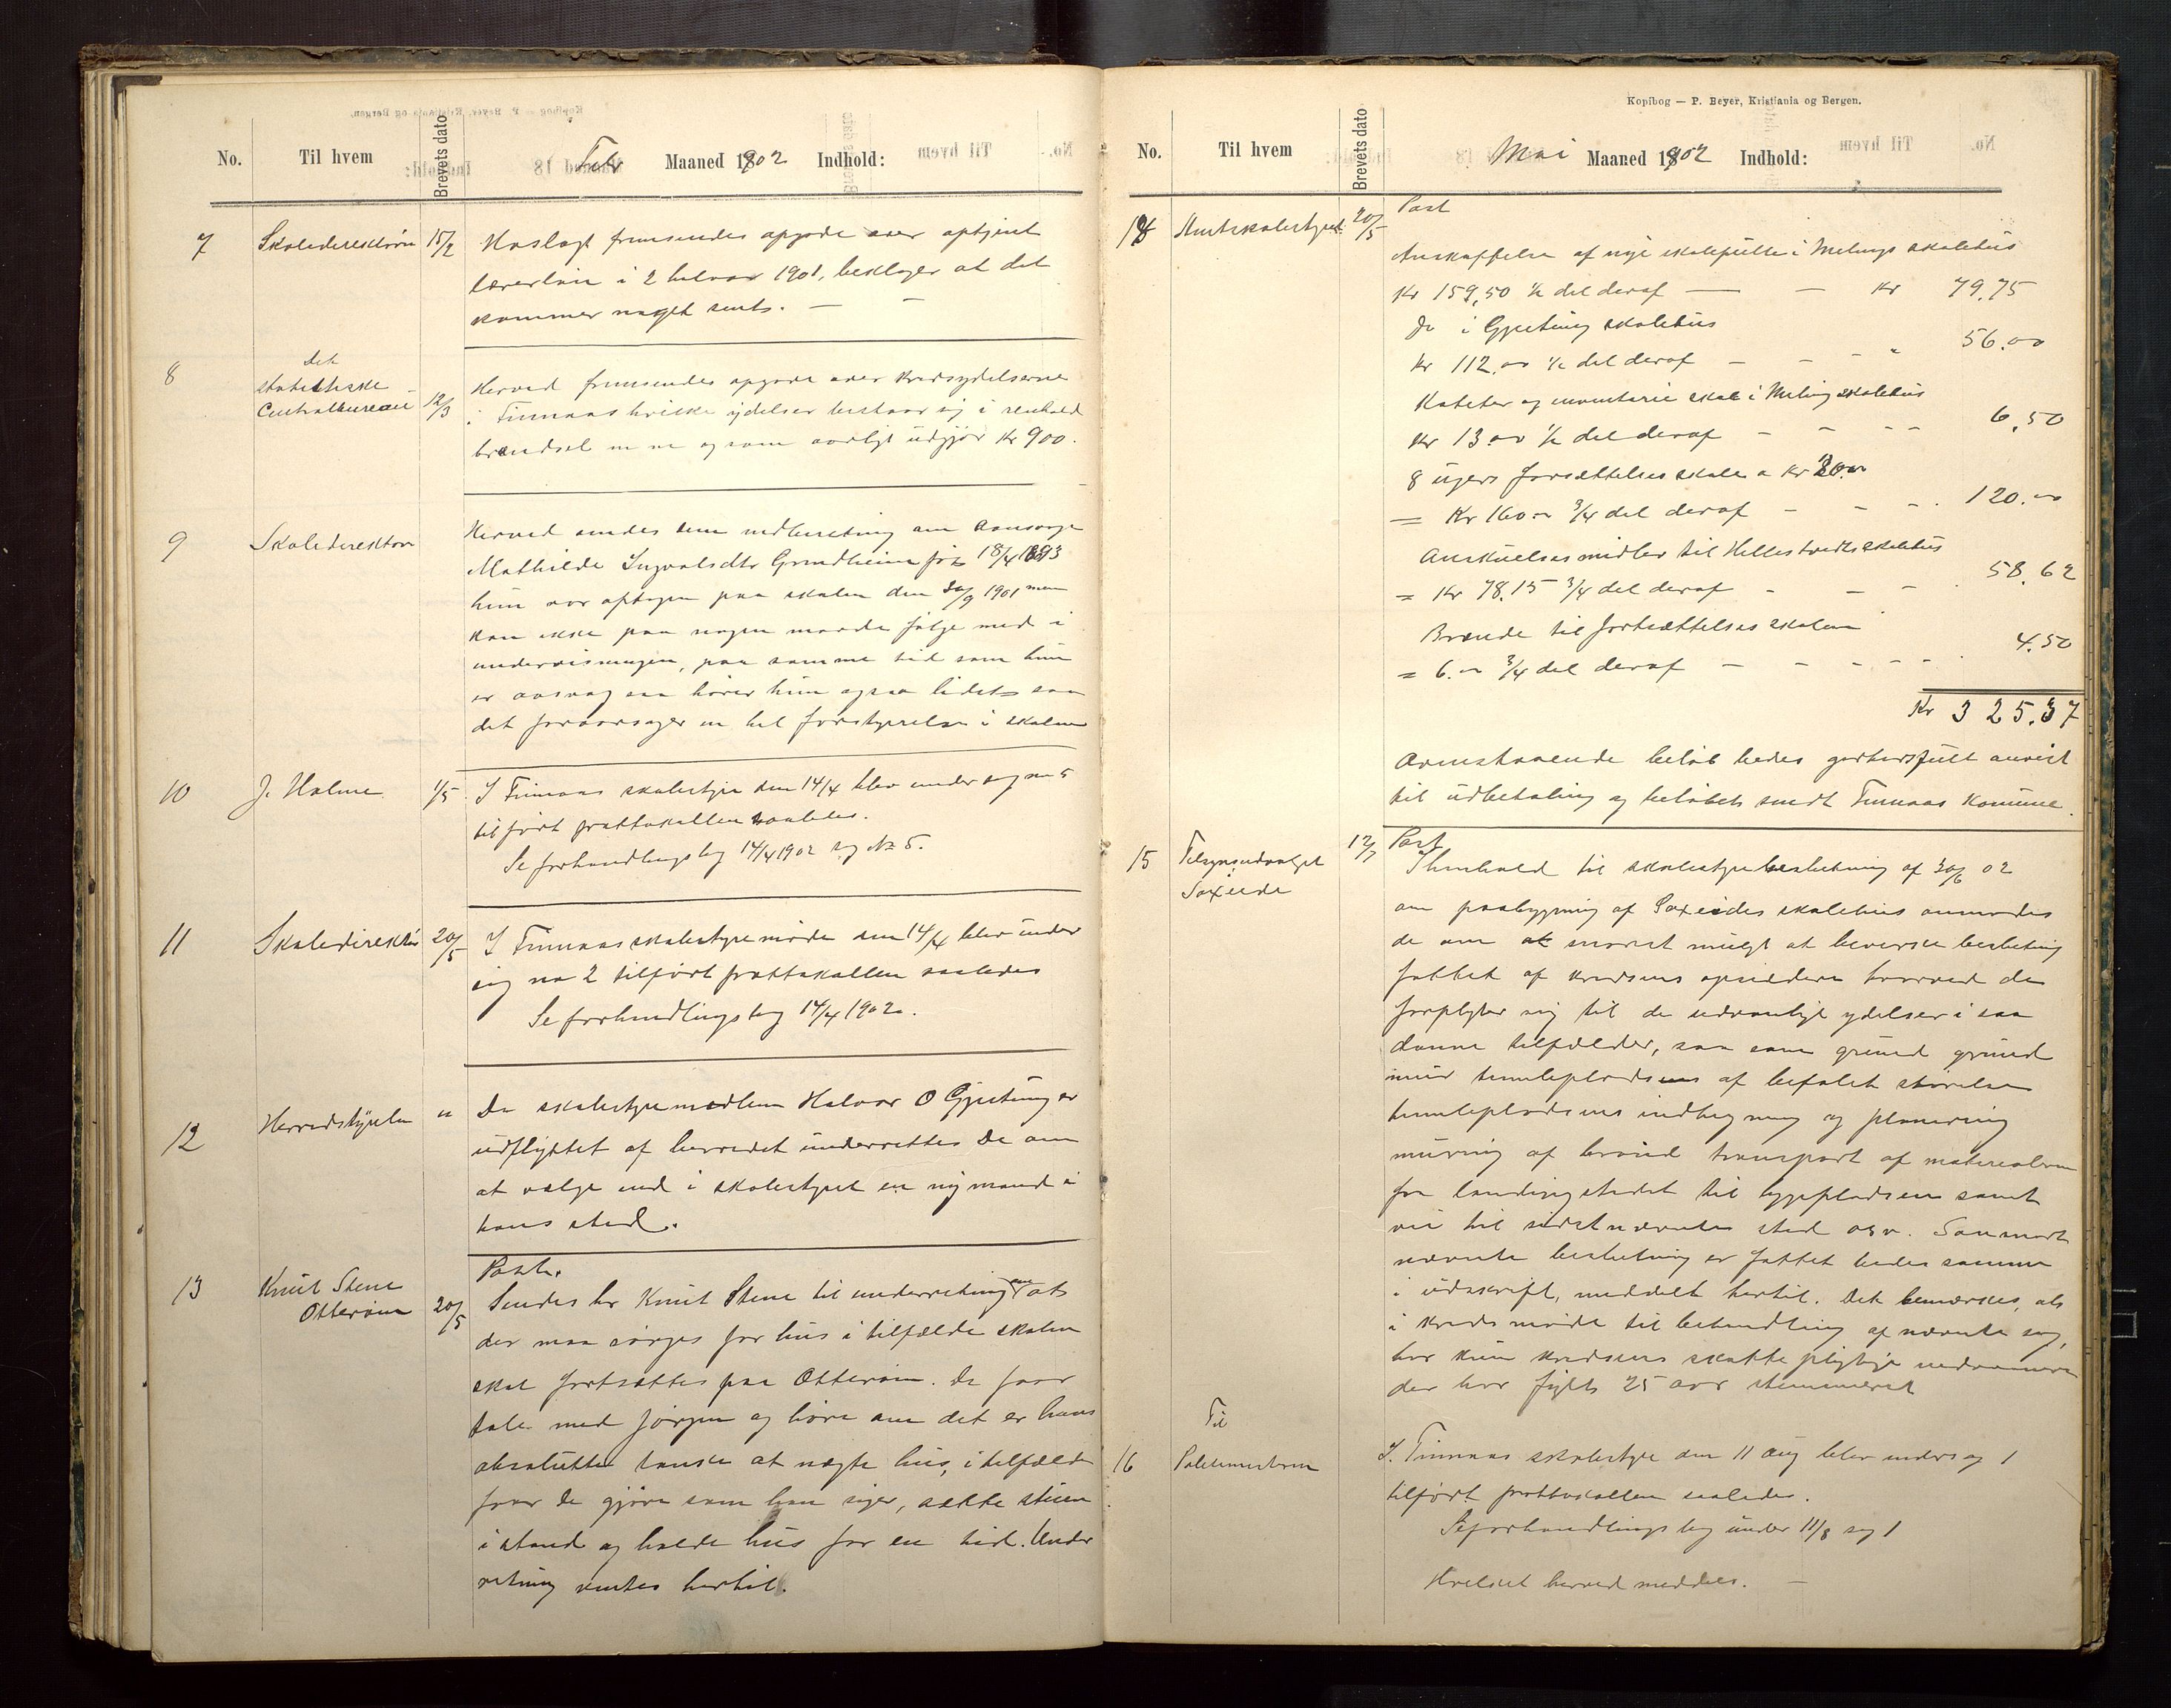 No. Til hvem Brevets dato Febr Maaned 1902 Indhold:
7 Skoledirektøren 15/2 Hoslagt fremsendes opgave over optjent
lærerløn i 2 halvaar 1901, beklager at det
kommer noget sent. —
8 Det
statistiske
Centralbureau 12/3 Herved fremsendes opgave over Kredsydelserne
i Finnaas hvilke ydelser bestaar sig i renhold
brændsel m m og som aarligt udgjør Kr 900.
9 Skoledirektøren Herved sendes dem indberetning om aansvage
Mathilde Ingvalsdtr Grindheim fød 18/4 1893
hun var optagen paa skolen den 30/9 1901 men
kan ikke paa nogen maade følge med i
undervisningen, paa samme tid som hun
er aasvag saa hører hun ogsaa lidet saa
det foraarsager en hel forstyrrelse i skolen
10 J. Holme 1/5 I Finnaas skolestyre den 14/4 blev under sag no 5
tilført prottokollen saaledes.
Se forhandlingsbog 14/4 1902 sag No 5.
11 Skoledirektør 20/5 I Finnaas skolestyremøde den 14/4 blev under
sag no 2 tilført prottokollen saaledes
Se forhandlingsbog 14/4 1902.
12 Herredsstyrelsen " Da skolestyremedlem Halvor O Gjerting er
udflyttet af herredet underrettes De om
at vælge ind i skolestyret en ny mand i
hans sted.
13 Knut Stene
Otterøen 20/5 Paate.
Sendes hr Knut Stene til underretning om at
der maa sørges for hus i tilfælde skolen
skal fortsættes paa Otterøen. De faar
tale med Jørgen og høre om det er hans
absolutte tanke at nægte hus, i tilfælde
faar De gjøre som han siger, sætte stuen
i stand og holde hus for en tid. Under
retning ventes hertil.
Kopibog — P. Beyer, Kristiania og Bergen.
No. Til hvem Brevets dato Mai Maaned 1902 Indhold:
14 Amtsskolestyret 20/5 Part
Anskaffelse af nye skolepulte i Melings skolehus
Kr 159,50 ½ del deraf — — Kr 79.75
Do i Gjerting skolehus
Kr 112.00 ½ del deraf — — - " 56.00
Kateter og inventarie skab i Meling skolehus
Kr 13.00 ½ del deraf — — - - 6,50
8 ugers forsættelsesskole a Kr 20.00
= Kr 160.00 ¾ del deraf — — - . 120.00
Anskuelsesmidler til Hellestvedts skolehus
= Kr 78.15 ¾ del deraf - — - . 58.62
Brænde til fortsættelsesskolen
= 6.00 ¾ del deraf — - - - . 4.50
Kr 325.37
Ovenstaaende beløb bedes godhedsfult anvist
til udbetaling og beløbet sendt Finnaas Komune.
15 Tilsynsudvalget
Soxeide 12/7 Part
I henhold til skolestyrebeslutning af 30/6 02
om paabygning af Soxeides skolehus anmodes
de om at snarest muligt at beverke beslutning
fattet af kredsens opsiddere hvorved de
forpligter sig til de sedvanlige ydelser i saa
danne tilfælder, saa som grund grund
mur tunleplads af befalet størelse
tunlepladsens indhegning og planering
muring af brønd transport af materialerne
fra landingstedet til byggepladsen samt
vei til sidstnævnte sted osv. Saasnart
nævnte beslutning er fattet bedes samme
i udskrift, meddelt hertil. Det bemærkes, at
i kredsmøde til behandling af nævnte sag,
har kun kredsens skattepligtige indvaanere
der har fyldt 25 aar stemmeret
16 Til
Politimesteren I. Finnaas skolestyre den 11 aug blev under sag 1
tilført prottokollen saaledes.
Se forhandlingsbog under 11/8 sag 1
Hvilket herved meddeles. —